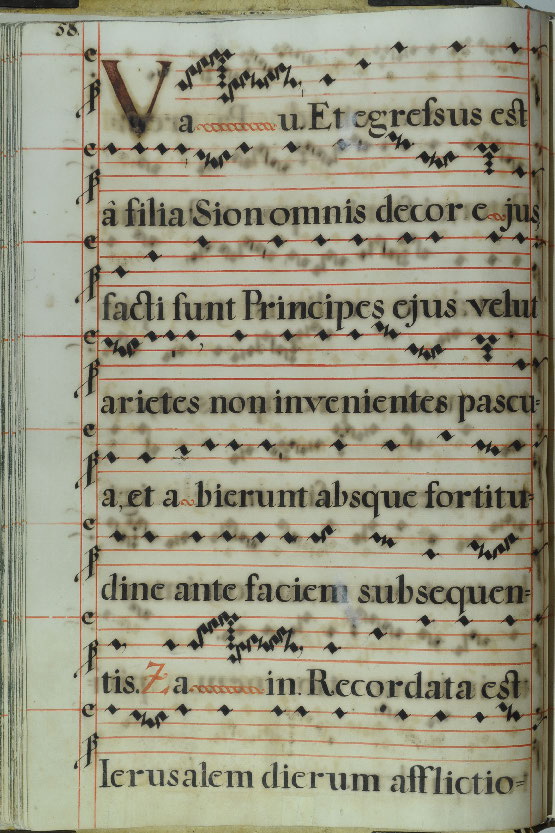 58.
Va u. Et egressus est
â filia Sion omnis decor ejus
facti sunt Principes ejus velut
arietes non invenientes pascu=
a, et abierunt absque fortitu=
dine ante faciem subsequen=
tis. Za in. Recordata est
Ierusalem dierum afflictio=